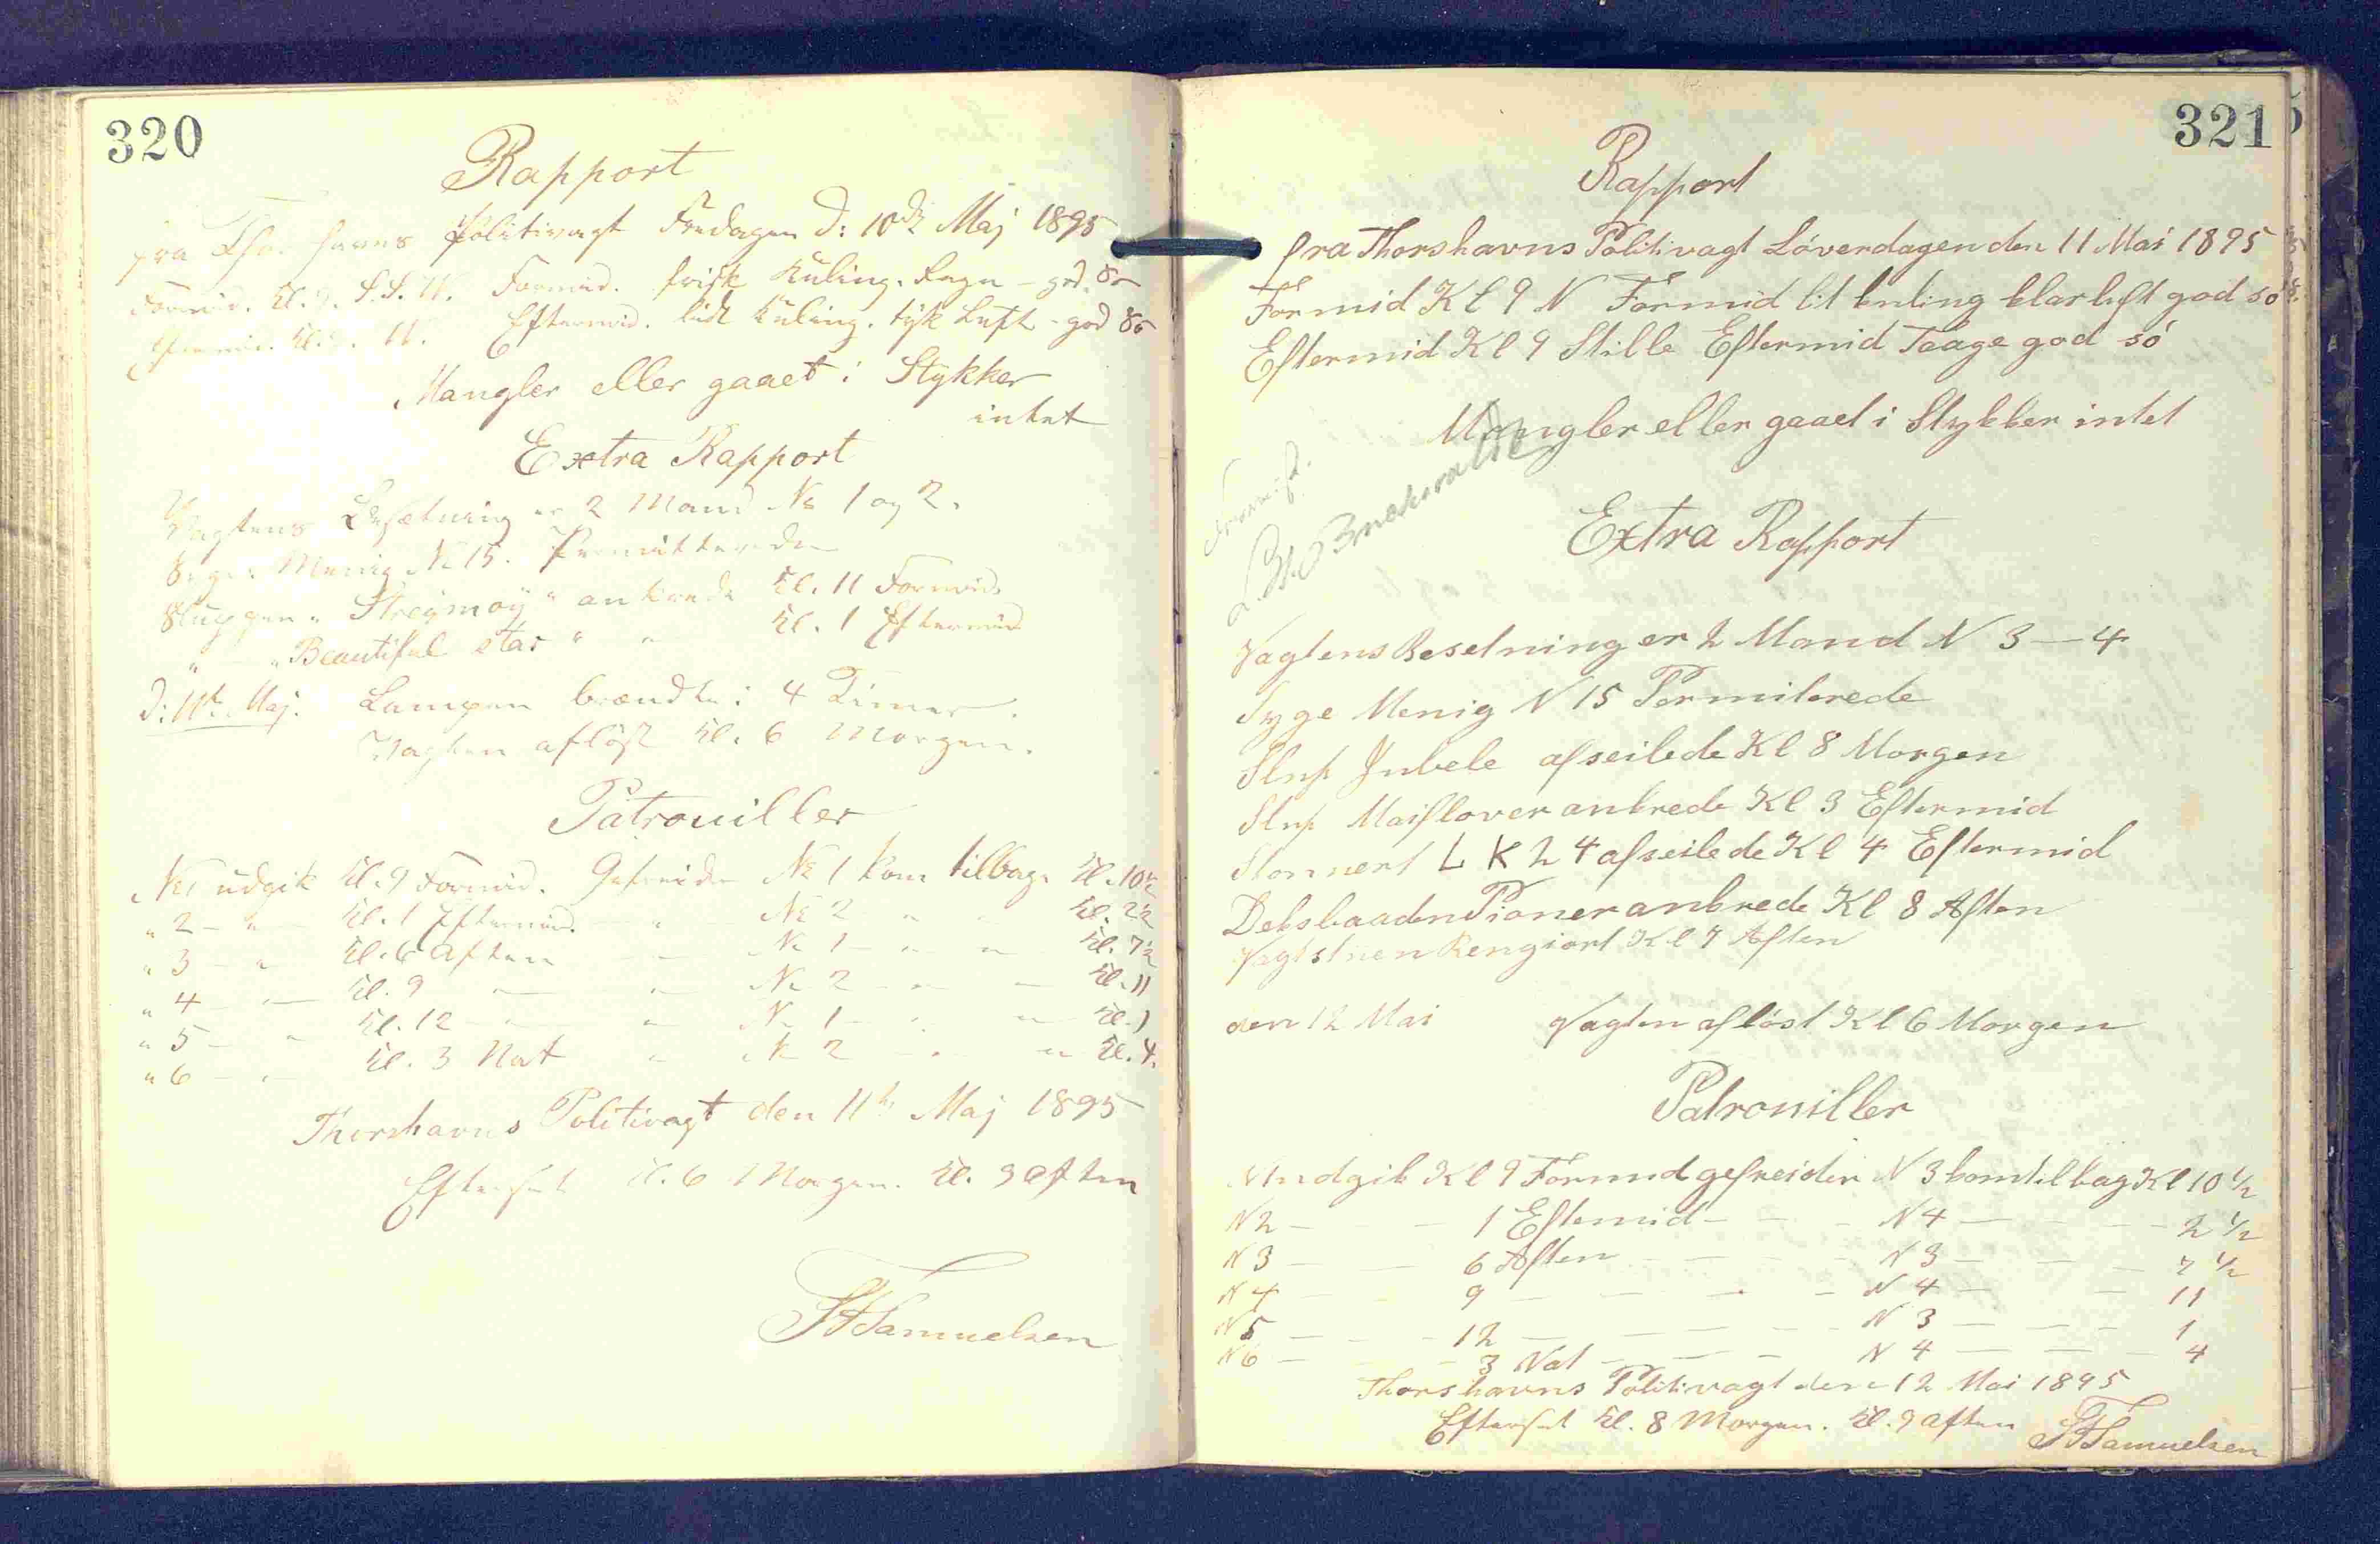 320
Rapport
fra Tho. havns Politivagt Fredagen D: 10de Maj 1895
Formid. Kl. 9. S.S.V. Formid. frisk Kuling. Regn - god Sö
Eftermid. Kl. 9. V. Eftermid. lidt Kuling. tyk Luft - god Sö
Mangler eller gaaet i Stykker
intet
Extra Rapport
Vagtens Besætning er 2 Mand No 1 og 2.
Syge: Menig No 15. Permitterede
Sluppen "Streymoy" ankrede Kl. 11 Formid.
" - "Beautiful star" " Kl. 1 Eftermid
D: 11te Maj. Lampen brændte i 4 Timer.
Vagten aflöst Kl. 6 Morgen.
Patrouiller
No 1 udgik Kl. 9 Formid. Gefreider No 1 kom tilbage Kl. 10½
" 2 - " - Kl. 1 Eftermid. - " No 2 " - Kl. 2½
" 3 - " Kl. 6 Aften - No 1 - " " Kl. 7½
" 4 - " - Kl. 9 " - " - No 2 - " - Kl. 11
" 5 - " Kl. 12 - " - " No 1 - " " - Kl. 1
" 6 - " - Kl. 3 Nat " No 2 - " " Kl. 4.
Thorshavns Politivagt den 11te Maj 1895
Efterset Kl. 6 Morgen. Kl. 9 Aften
Samuelsen
321
Rapport
fra Thorshavns Politivagt Löverdagen den 11 Mai 1895
Formid Kl 9 N Formid lit kuling klar luft god sö
Eftermid Kl 9 Stille Eftermid Taage god sö
Mangler eller gaaet i Stykker intet
Extra Rapport
Vagtens Besetning er 2 Mand N 3 — 4
Syge Menig N 15 Permiterede
Slup Jubele afseilede Kl 8 Morgen
Slup Maiflover ankrede Kl 3 Eftermid
L K 24 afseilede Kl 4 Eftermid
Deksbaaden Pioner ankrede Kl 8 Aften
Vagtstuen Rengiort Kl 7 Aften
den 12 Mai Vagten aflöst Kl 6 Morgen
Patrouiller
N 1 udgik Kl 9 Formid gefreider N 3 kom tilbag Kl 10 ½
N 2 — - 1 Eftemid - - - N 4 — - - 2 ½
N 3 — - 6 Aften - - - N 3 — - - 7 ½
N 4 — - 9 - - - - N 4 — - 11
N 5 — - - 12 - - - - N 3 — - - 1
N 6 — - - 3 Nat - - - N 4 — - - 4
Thorshavns Politivagt den 12 Mai 1895
Efterset Kl. 8 Morgen. Kl. 9 Aften Samuelsen